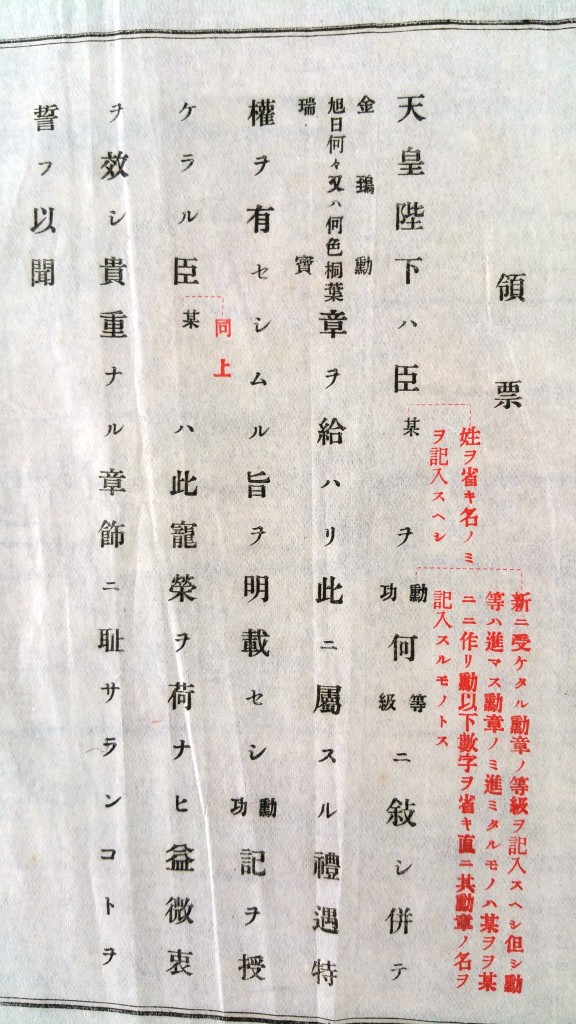 領票
姓ヲ省キ名ノミ
ヲ記入スヘシ
新ニ受ケタル勳章ノ等級ヲ記入スヘシ但シ勳
等ハ進マス勳章ノミ進ミタルモノハ某ヲヲ某
ニニ作リ勳以下數字ヲ省キ直ニ其勳章ノ名ヲ
記入スルモノトス
天皇陛下ハ臣某ヲ勳功何等級ニ敍シ併テ
金鵄勳
旭日何々又ハ何色桐葉
瑞寶
章ヲ給ハリ此ニ屬スル禮遇特
權ヲ有セシムル旨ヲ明載セシ勳功記ヲ授
同上
ケラル臣某ハ此寵榮ヲ荷ナヒ益微衷
ヲ效シ貴重ナル章飾ニ耻サランコトヲ
誓フ以聞